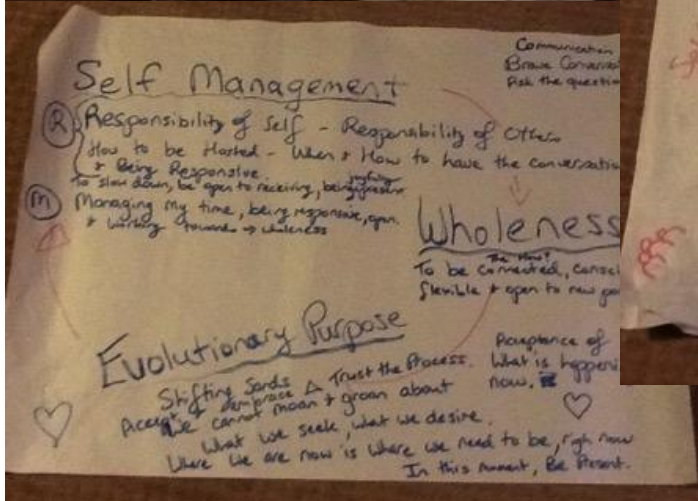 Communication
Brave Conversa
Ask the question
Self Management
R Responsibility of Self - Responsibility of Others
How to be Hosted - When & How to have the conversatio
& Being Responsive.
To slow down, be open to receiving, being present
M Managing my time, being responsive, open
& working towards → wholeness
Wholeness
The How?
To be connected, consci
flexible & open to new pos
Evolutionary Purpose
Shifting Sands
Accept & embrace Δ Trust the Process.
We cannot moan & groan about
What we seek, what we desire.
Where we are now is where we need to be, righ now
In this moment, Be Present.
Acceptance of
What is happeni
now.